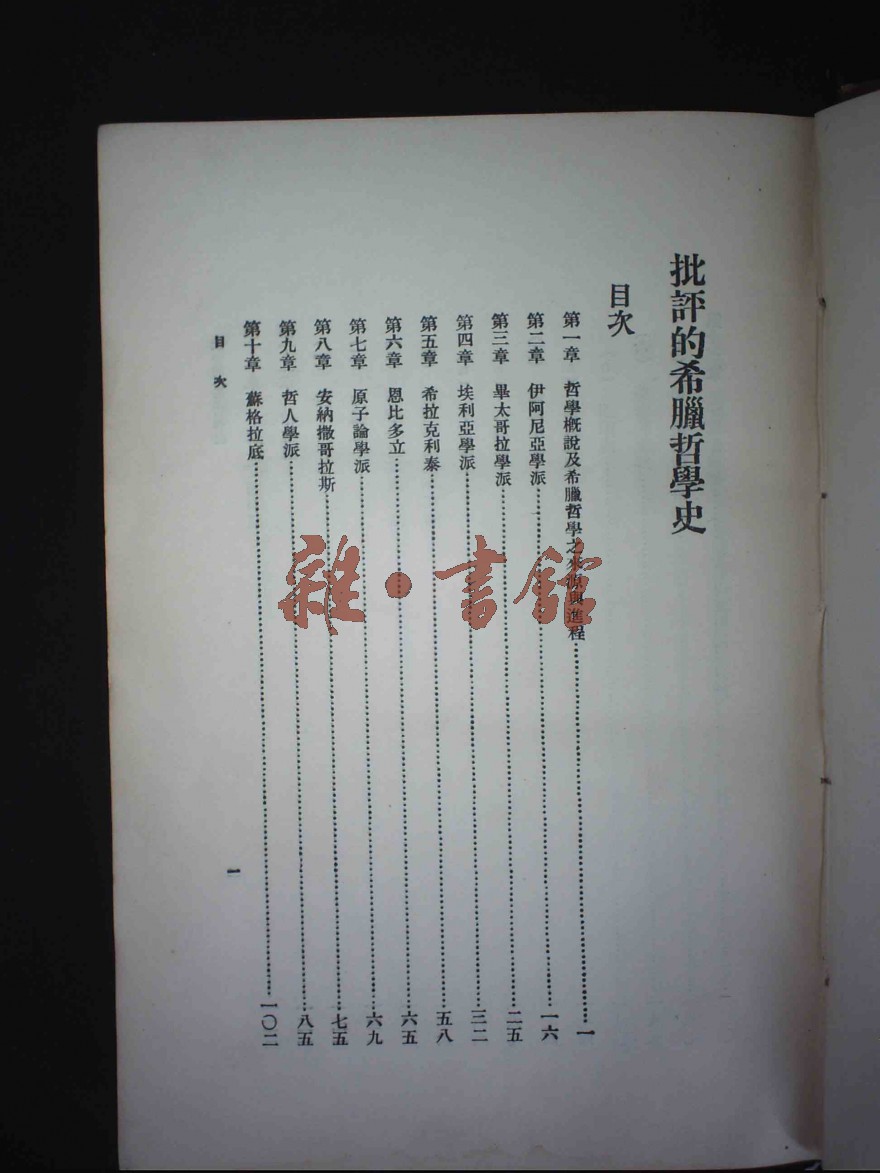 批評的希臘哲學史
目次
第一章 哲學概說及希臘哲學之來源與進程……一
第二章 伊阿尼亞學派……一六
第三章 畢太哥拉學派……二五
第四章 埃利亞學派……三二
第五章 希拉克利泰……五八
第六章 恩比多立……六五
第七章 原子論學派……六九
第八章 安納撒哥拉斯……七五
第九章 哲人學派……八五
第十章 蘇格拉底……一〇二
目次
一
雜·書館